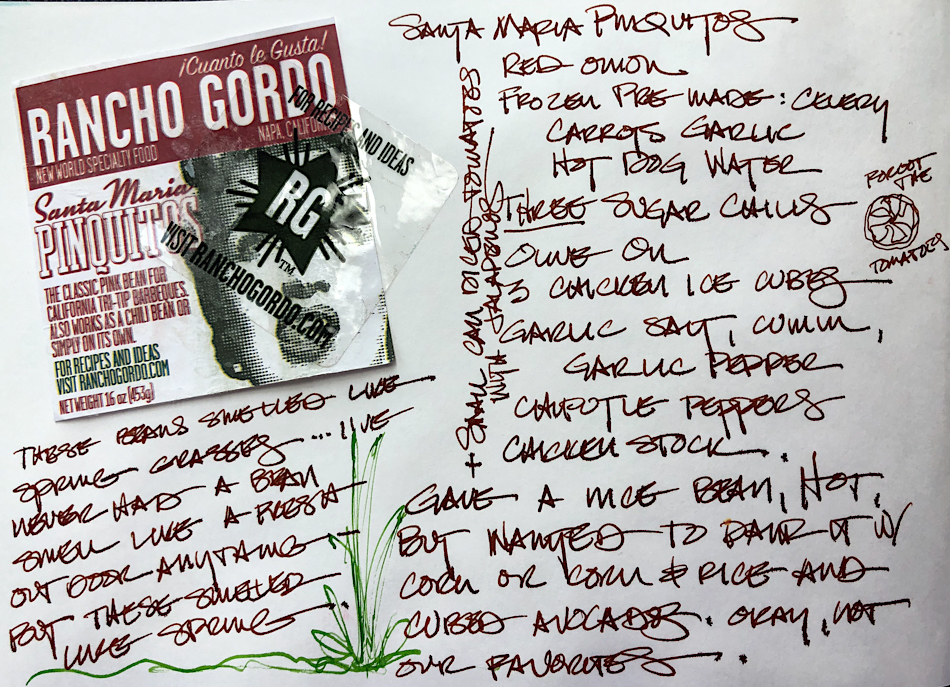 ¡Cuanto le Gusta!
RANCHO GORDO
NAPA, CALIFOR
NEW WORLD SPECIALTY FOOD
Santa Maria
PINQUITOS
THE CLASSIC PINK BEAN FOR
CALIFORNIA TRI-TIP BARBEQUES.
ALSO WORKS AS A CHILI BEAN OR
SIMPLY ON ITS OWN.
FOR RECIPES AND IDEAS
VISIT RANCHOGORDO.COM
NET WEIGHT 16 oz (453g)
FOR RECIPES AND IDEAS
RG
TM
VISIT RANCHOGORDO.COM
THESE BEANS SMELLED LIKE
SPRING GRASSES ... I'VE
NEVER HAD A BEAN
SMELL LIKE A FRESH
OUT DOOR ANYTHING –
BUT THESE SMELLED
LIKE SPRING.
SANTA MARIA PINQUITOS
RED ONION
FROZEN PRE-MADE: CELERY
CARROTS GARLIC
HOT DOG WATER
THREE SUGAR CHILIS
OLIVE OIL
3 CHICKEN ICE CUBES
GARLIC SALT, CUMIN,
GARLIC PEPPER
CHIPOTLE PEPPERS
CHICKEN STOCK.
+ SMALL CAN DICED TOMATOES
WITH JALAPENOS
FORGOT
THE
TOMATOES
GAVE A NICE BEAN, HOT,
BUT WANTED TO PAIR IT W/
CORN OR CORN & RICE AND
CUBED AVOCADOS. OKAY, NOT
OUR FAVORITES.